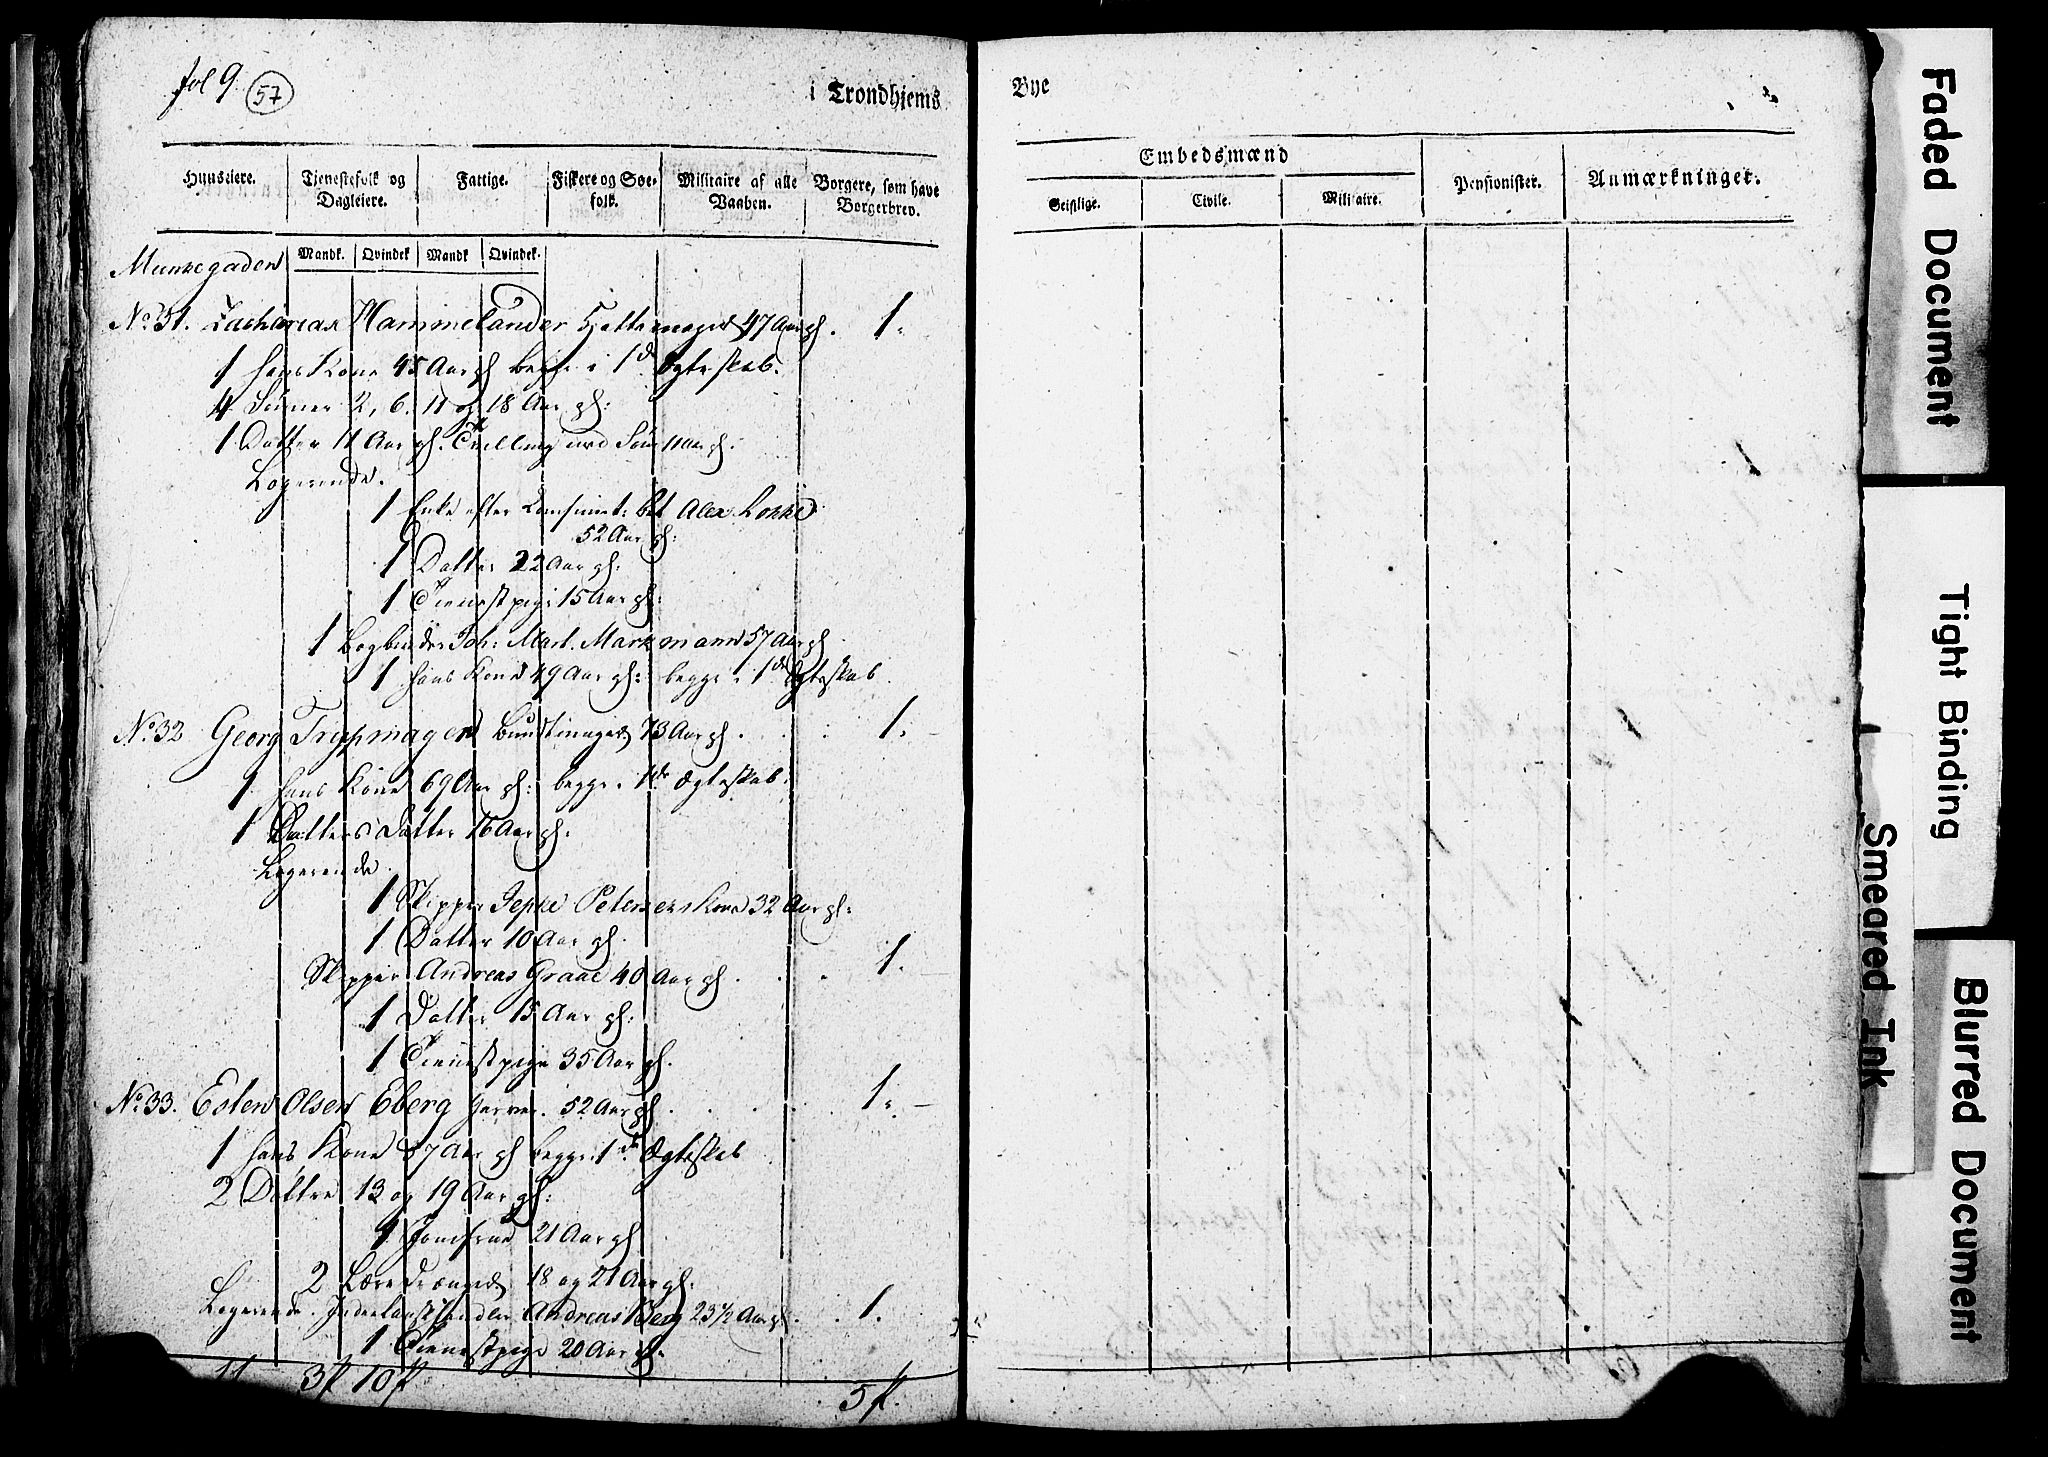 fol 9. 57
i Trondhjems
Bye
Huuseiere.
Tjenestefolk og Dagleiere.
Fattige.
Fiskere og Søe-folk.
Militaire af alle Vaaben.
Borgere, som have Borgerbrev.
Embedsmænd
Geistlige.
Civile.
Militaire.
Pensionister.
Anmærkninger.
Mandk. Qvindek Mandk Qvindek.
Munkegaden
No. 31. Zacharias Hammelander Hattemager 47 Aar gl. 1.
1 hans Kone 45 Aar gl begge i 1de Ægteskab.
4 Sönner 2, 6, 11 og 18 Aar gl:
1 Datter 11 Aar gl. Tvilling med Søn 11 Aar gl:
Logerende.
1 Enke efter Alex Lokke
52 Aar gl:
1 Datter 22 Aar gl:
1 Tienestpige 15 Aar gl:
1 Bogbinder Joh: Mart. Markmann 57 Aar gl
1 hans Kone 49 Aar gl: begge i 1de Ægteskab
No. 32 Georg Trippmager Buntmager 73 Aar gl. 1.
1 hans Kone 69 Aar gl: begge i 1de Ægteskab.
1 Datters Datter 16 Aar gl:
Logerende
1 Skipper Jepke Petersens Kone 32 Aar gl:
1 Datter 10 Aar gl.
Skipper Andreas Graae 40 Aar gl. 1.
1 Datter 15 Aar gl:
1 Tienestpige 35 Aar gl.
No. 33. Esten Olsen Eberg Garver. 52 Aar gl 1.
1 hans Kone 57 Aar gl begge i 1de Ægteskab
2 Døttre 13 og 19 Aar gl:
1 Jomfrue 21 Aar gl
2 Læredrenge 18 og 21 Aar gl.
Logerende. Inderlandshandler Andreas Berg 23 1/2 Aar gl. 1.
1 Tienestpige 20 Aar gl.
11 3 10 5
Faded Document
Tight Binding
Smeared Ink
Blurred Document